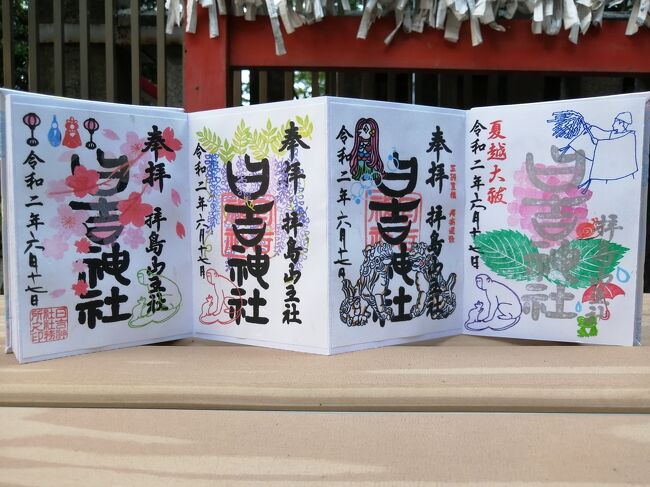 奉拝 拝島山王社
日吉神社
令和二年六月十七日
日吉神社社務所之印
奉拝 拝島山王社
日吉神社
令和二年六月十七日
奉拝 拝島山王社
日吉神社
令和二年六月十七日
拝島
日吉神社
夏越大祓
令和二年六月十七日